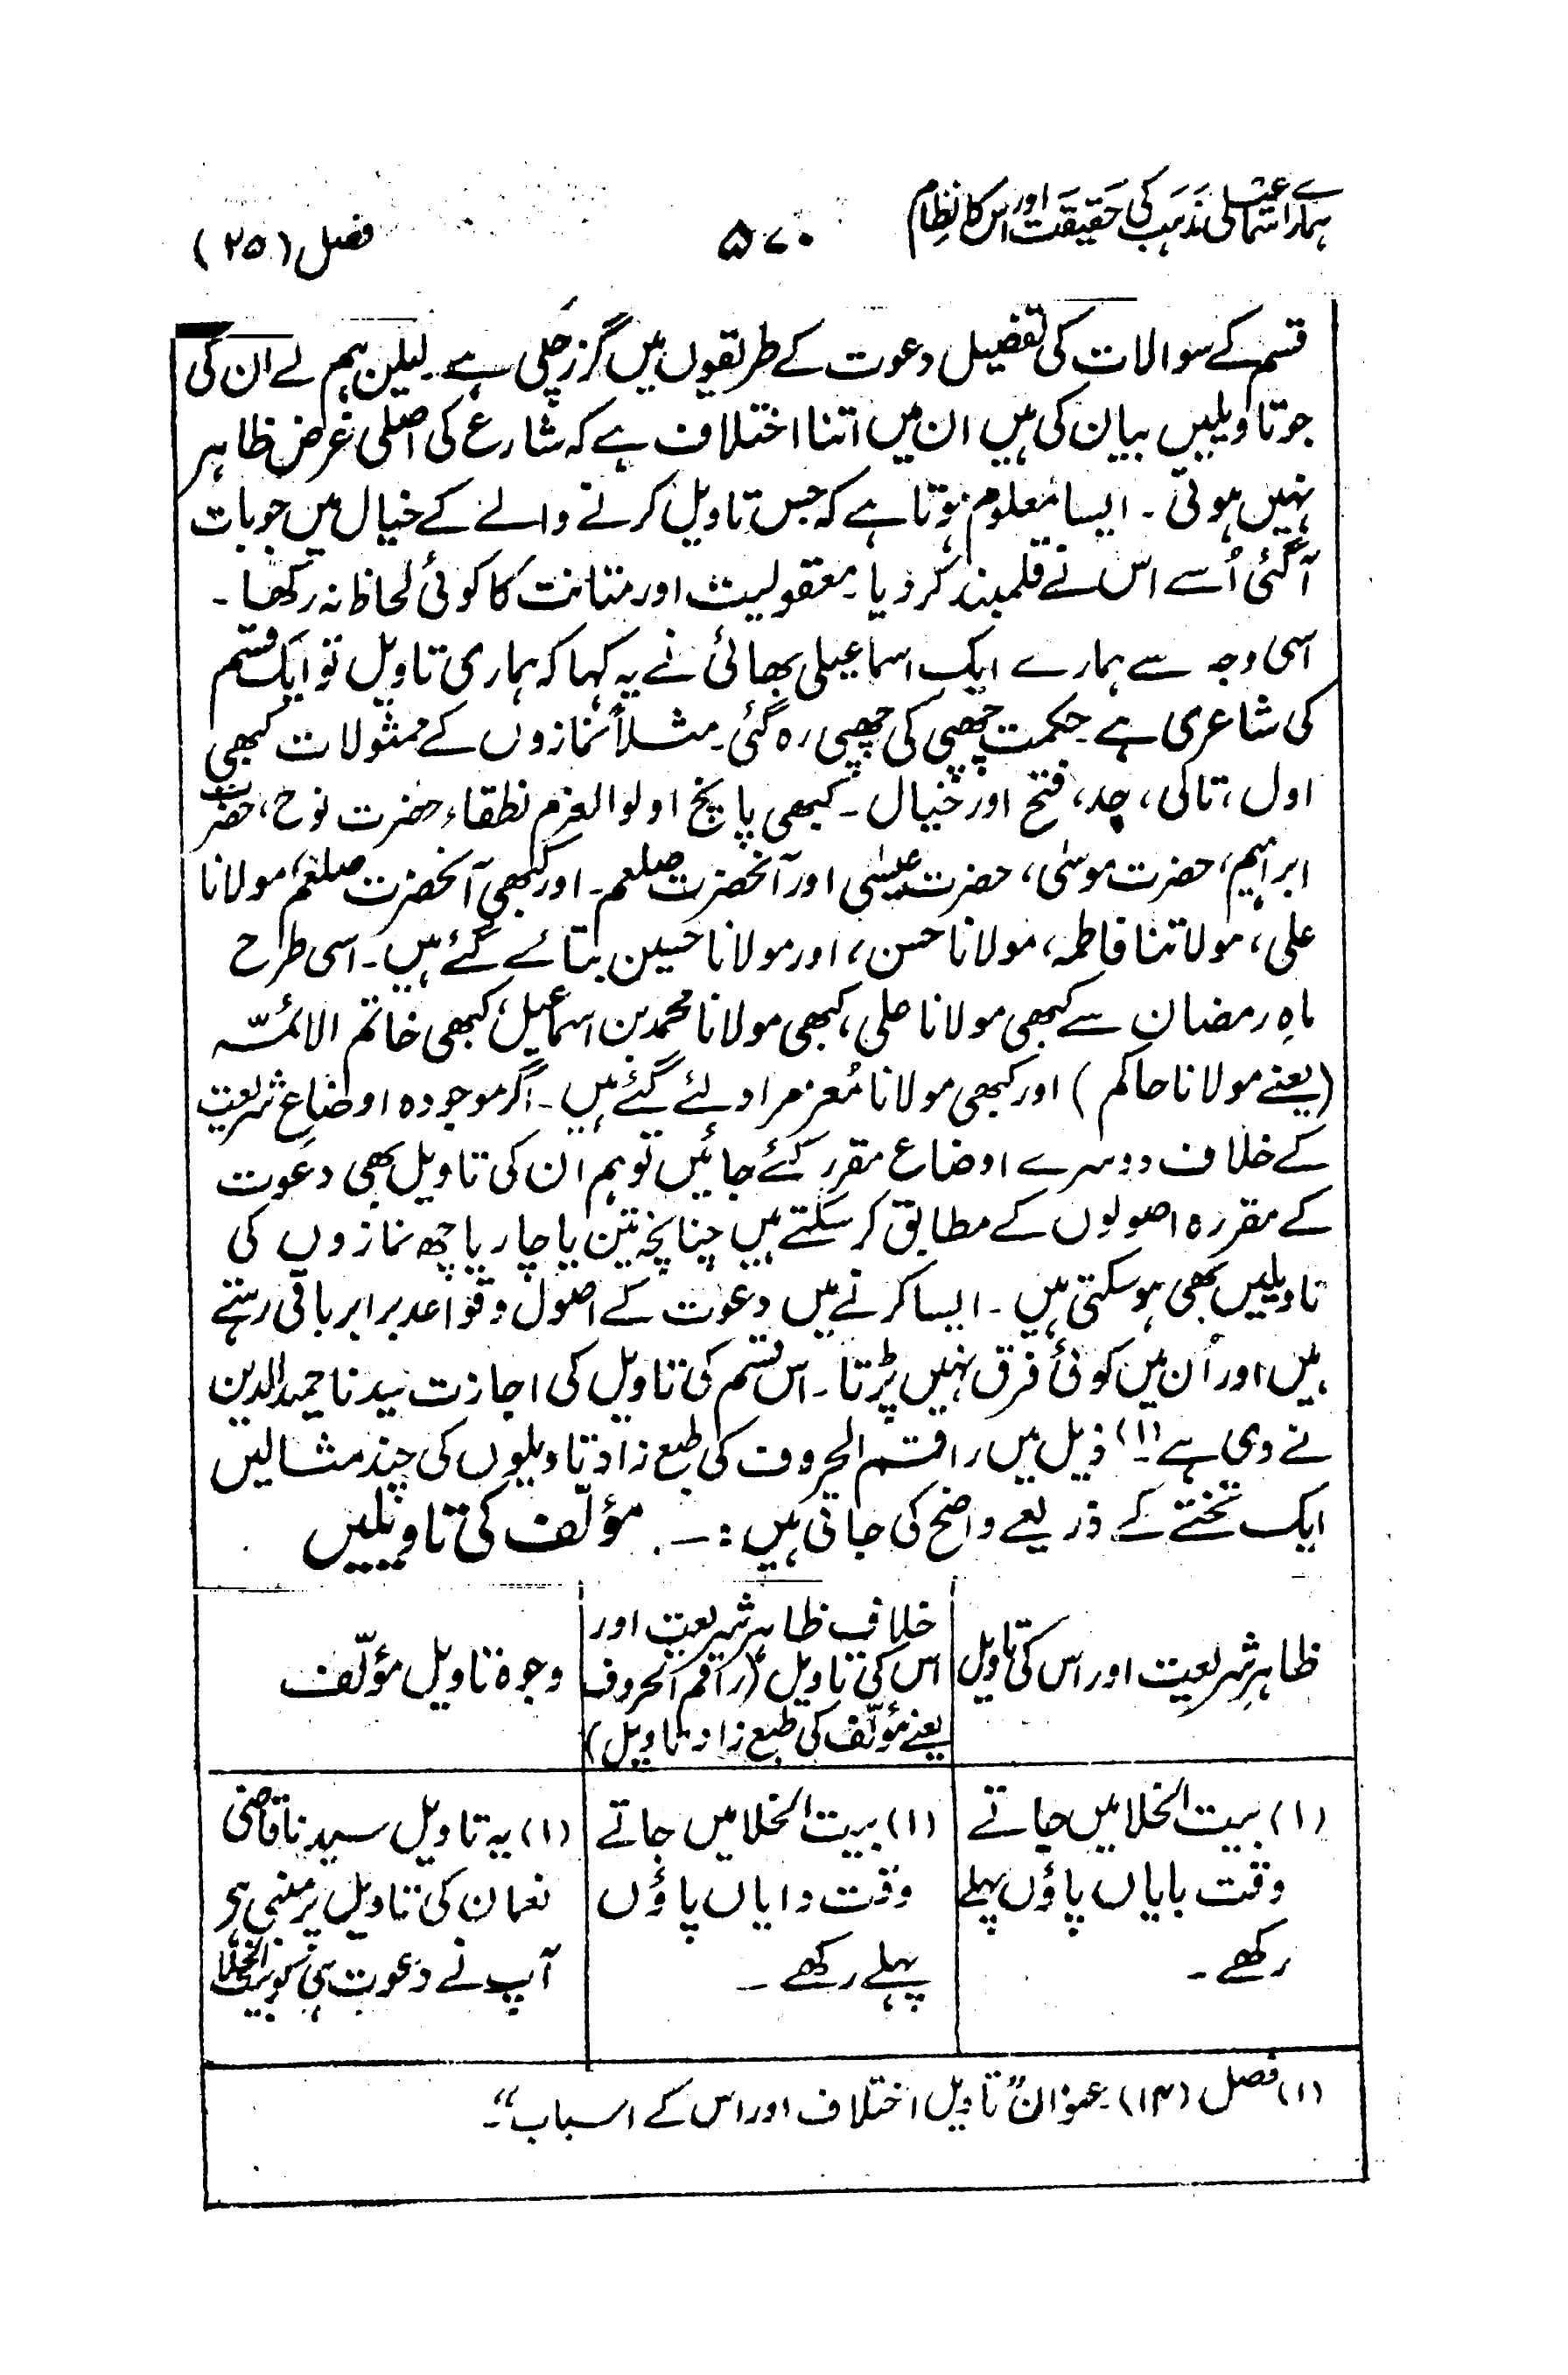 ہمارے اسماعیلی مذہب کی حقیقت اور اس کا نظام
۵۷۰
فصل (۲۵)
قسم کے سوالات کی تفصیل دعوت کے طریقوں میں گزر چلی ہے۔ لیکن ہم نے ان کی
جو تاویلیں بیان کی ہیں ان میں اتنا اختلاف ہے کہ شارع کی اصلی غرض ظاہر
نہیں ہوتی۔ ایسا معلوم ہوتا ہے کہ جس تاویل کرنے والے کے خیال میں جو بات
آگئی اُسے اس نے قلمبند کر دیا۔ معقولیت اور متانت کا کوئی لحاظ نہ رکھا۔
اسی وجہ سے ہمارے ایک اسماعیلی بھائی نے یہ کہا کہ ہماری تاویل تو ایک قسم
کی شاعری ہے حکمت چھپی کی چھپی رہ گئی۔ مثلاً نمازوں کے ممثولات کبھی
اول، تالی، جد، فتح اور خیال۔ کبھی پانچ اولوالعزم نطقاء حضرت نوح، حضرت
ابراہیم، حضرت موسیٰ، حضرت عیسٰی اور آنحضرت صلعم۔ اور کبھی آنحضرت صلعم، مولانا
علی، مولاتنا فاطمہ، مولانا حسن، اور مولانا حسین بتائے گئے ہیں۔ اسی طرح
ماہِ رمضان سے کبھی مولانا علی، کبھی مولانا محمد بن اسماعیل، کبھی خاتم الائمّہ
(یعنے مولانا حاکم) اور کبھی مولانا مُعز مراد لئے گئے ہیں۔ اگر موجودہ اوضاعِ شریعت
کے خلاف دوسرے اوضاع مقرر کئے جائیں تو ہم ان کی تاویل بھی دعوت
کے مقررہ اصولوں کے مطابق کر سکتے ہیں چنانچہ تین یا چار یا چھ نمازوں کی
تاویلیں بھی ہو سکتی ہیں۔ ایسا کرنے میں دعوت کے اصول و قواعد برابر باقی رہتے
ہیں اور اُن میں کوئی فرق نہیں پڑتا۔ اس قسم کی تاویل کی اجازت سیدنا حمید الدین
نے دی ہے۔(۱) ذیل میں راقم الحروف کی طبع زاد تاویلوں کی چند مثالیں
ایک تختے کے ذریعے واضح کی جاتی ہیں :۔ مؤلّف کی تاویلیں
ظاہرِ شریعت اور اس کی تاویل
خلافِ ظاہرِ شریعت اور
اس کی تاویل (راقم الحروف
یعنے مؤلّف کی طبع زاد تاویل)
وجوہ تاویل مؤلّف
(۱) بیت الخلا میں جاتے
وقت بایاں پاؤں پہلے
رکھے۔
(۱) بیت الخلا میں جاتے
وقت دایاں پاؤں
پہلے رکھے۔
(۱) یہ تاویل سیدنا قاضی
نعمان کی تاویل پر مبنی ہے
آپ نے دعوت ہی کو بیت الخلا
(۱) فصل (۱۴) عنوان "تاویل اختلاف اور اس کے اسباب"۔